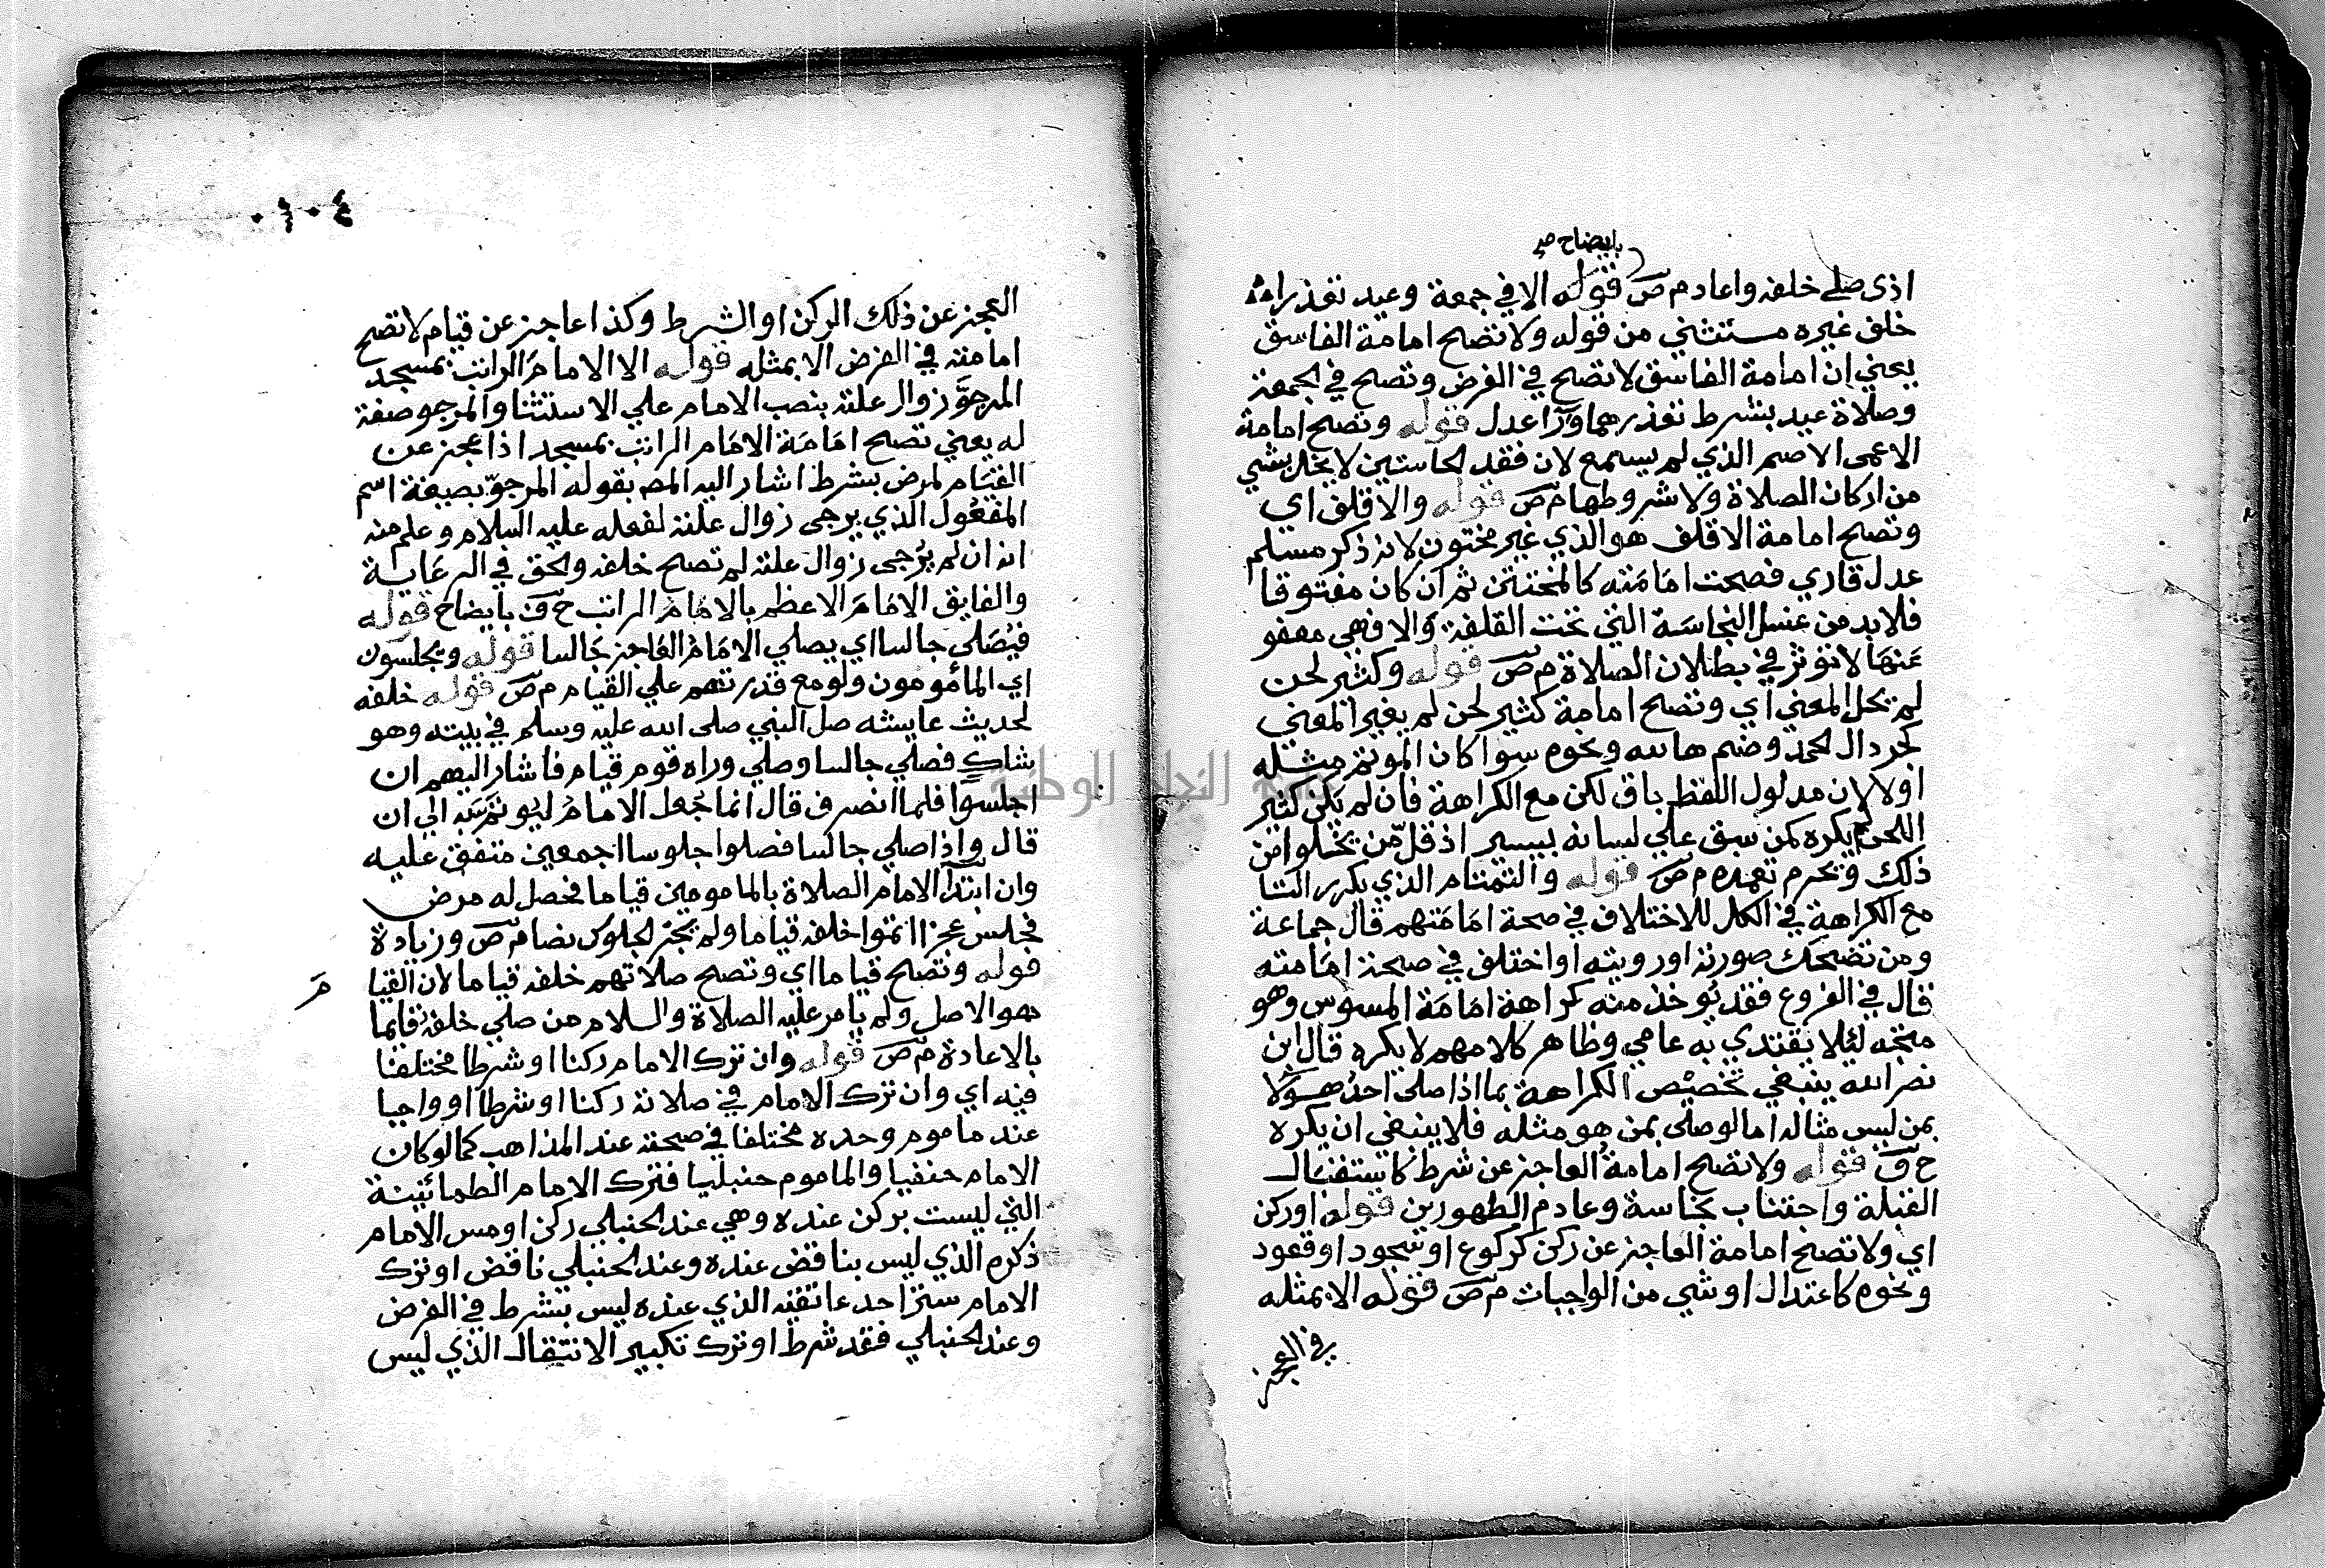 بايضاح صح
اذى صلى خلفه واعاد م ص قوله الا في جمعة وعيد تعذرا
خلف غيره مستثنى من قوله ولا تصح امامة الفاسق
يعني ان امامة الفاسق لا تصح في الفرض وتصح في الجمعة
وصلاة عيد بشرط تعذرهما ورآ عدل قوله وتصح امامة
الاعمى الاصم الذي لم يسمع لان فقد الحاستين لا يخل بشي
من اركان الصلاة ولا شروطها م ص قوله والاقلف اي
وتصح امامة الاقلف هو الذي غير مختون لانه ذكر مسلم
عدل قاري فصحت امامته كالمختتن ثم ان كان مفتوقا
فلا بد من غسل النجاسة التي تحت القلفة والا فهي معفو
عنها لا تؤثر في بطلان الصلاة م ص قوله وكثير لحن
لم يحل المعنى اي وتصح امامة كثير لحن لم يغير المعنى
كجر دال الحمد وضم هالله ونحوه سوا كان المؤتم مثله
اولا لان مدلول اللفظ باق لكن مع الكراهة فان لم يكن كثير
اللحن لم يكره كمن سبق على لسانه بيسير اذ قل من يخلوا من
ذلك ويحرم تعمده م ص قوله والتمتام الذي يكرر التا
مع الكراهة في الكل للاختلاف في صحة امامتهم قال جماعة
ومن تضحك صورته او رويته او اختلف في صحة امامته
قال في الفروع فقد يوخذ منه كراهة امامة الموسوس وهو
متجه لئلا يقتدي به عامي وظاهر كلامهم لا يكره قال ابن
نصر الله ينبغي تخصيص الكراهة بما اذا صلى احد هولا
بمن ليس مثاله اما لو صلى بمن هو مثله فلا ينبغي ان يكره
ح ق قوله ولا تصح امامة العاجز عن شرط كاستقبال
القبلة واجتناب نجاسة وعادم الطهورين قوله او ركن
اي ولا تصح امامة العاجز عن ركن كركوع او سجود او قعود
ونحوه كاعتدال او شي من الواجبات م ص قوله الا بمثله
في العجز
١٠٤
العجز عن ذلك الركن او الشرط وكذا عاجز عن قيام لا تصح
امامته في الفرض الا بمثله قوله الا الامام الراتب بمسجد
المرجوَّ زوال علته بنصب الامام علي الاستثنا والمرجو صفة
له يعني تصح امامة الامام الراتب بمسجد اذا عجز عن
القيام لمرض بشرط اشار اليه المص بقوله المرجوّ بصيغة اسم
المفعول الذي يرجى زوال علته لفعله عليه السلام وعلم منه
انه ان لم يُرجى زوال علته لم تصح خلفه والحق في الرعاية
والفايق الامام الاعظم بالامام الراتب ح ق بايضاح قوله
فيصلى جالسا اي يصلي الامام العاجز جالسا قوله ويجلسون
اي المأمومون ولو مع قدرتهم علي القيام م ص قوله خلفه
لحديث عايشه صل النبي صلى الله عليه وسلم في بيته وهو
شاكٍ فصلي جالسا وصلي وراه قوم قيام فاشار اليهم ان
اجلسوا فلما انصرف قال انما جُعل الامام ليؤتم به الي ان
قال واذا صلي جالسا فصلوا جلوسا اجمعين متفق عليه
وان ابتدآ الامام الصلاة بالمامومين قياما فحصل له مرض
فجلس عجزا اتموا خلفه قياما ولم يجز الجلوس نصا م ص وزيادة
قوله وتصح قياما اي وتصح صلاتهم خلفه قياما لان القيا م
هو الاصل ولم يامر عليه الصلاة والسلام من صلي خلفه قايما
بالاعادة م ص قوله وان ترك الامام ركنا او شرطا مختلفا
فيه اي وان ترك الامام في صلاته ركنا او شرطا او واجبا
عند ماموم وحده مختلفا في صحته عند المذاهب كما لو كان
الامام حنفيا والماموم حنبليا فترك الامام الطمأنينة
التي ليست بركن عنده وهي عند الحنبلي ركن او مس الامام
ذكره الذي ليس بناقض عنده وعند الحنبلي ناقض او ترك
الامام ستر احد عاتقيه الذي عنده ليس بشرط في الفرض
وعند الحنبلي فقد شرط او ترك تكبير الانتقال الذي ليس